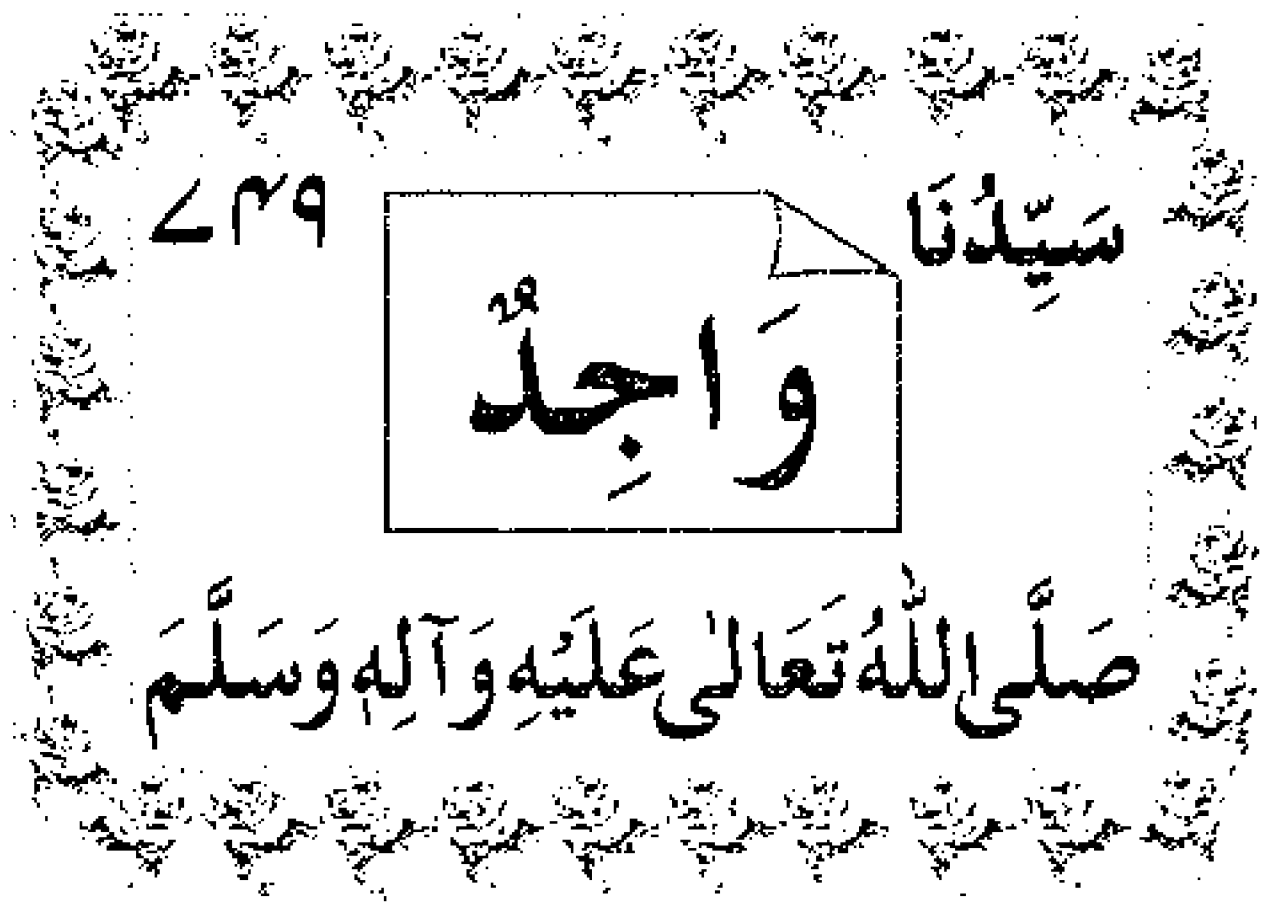 سَيِّدُنَا ۷۴۹
وَاجِدٌ
صَلَّى اللّٰهُ تَعَالٰى عَلَيْهِ وَآلِهٖ وَسَلَّمَ